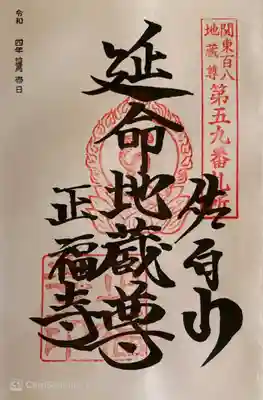 関東百八
地蔵尊
第五九番札所
佐白山
延命地蔵尊
正福寺
令和 四年 月 日